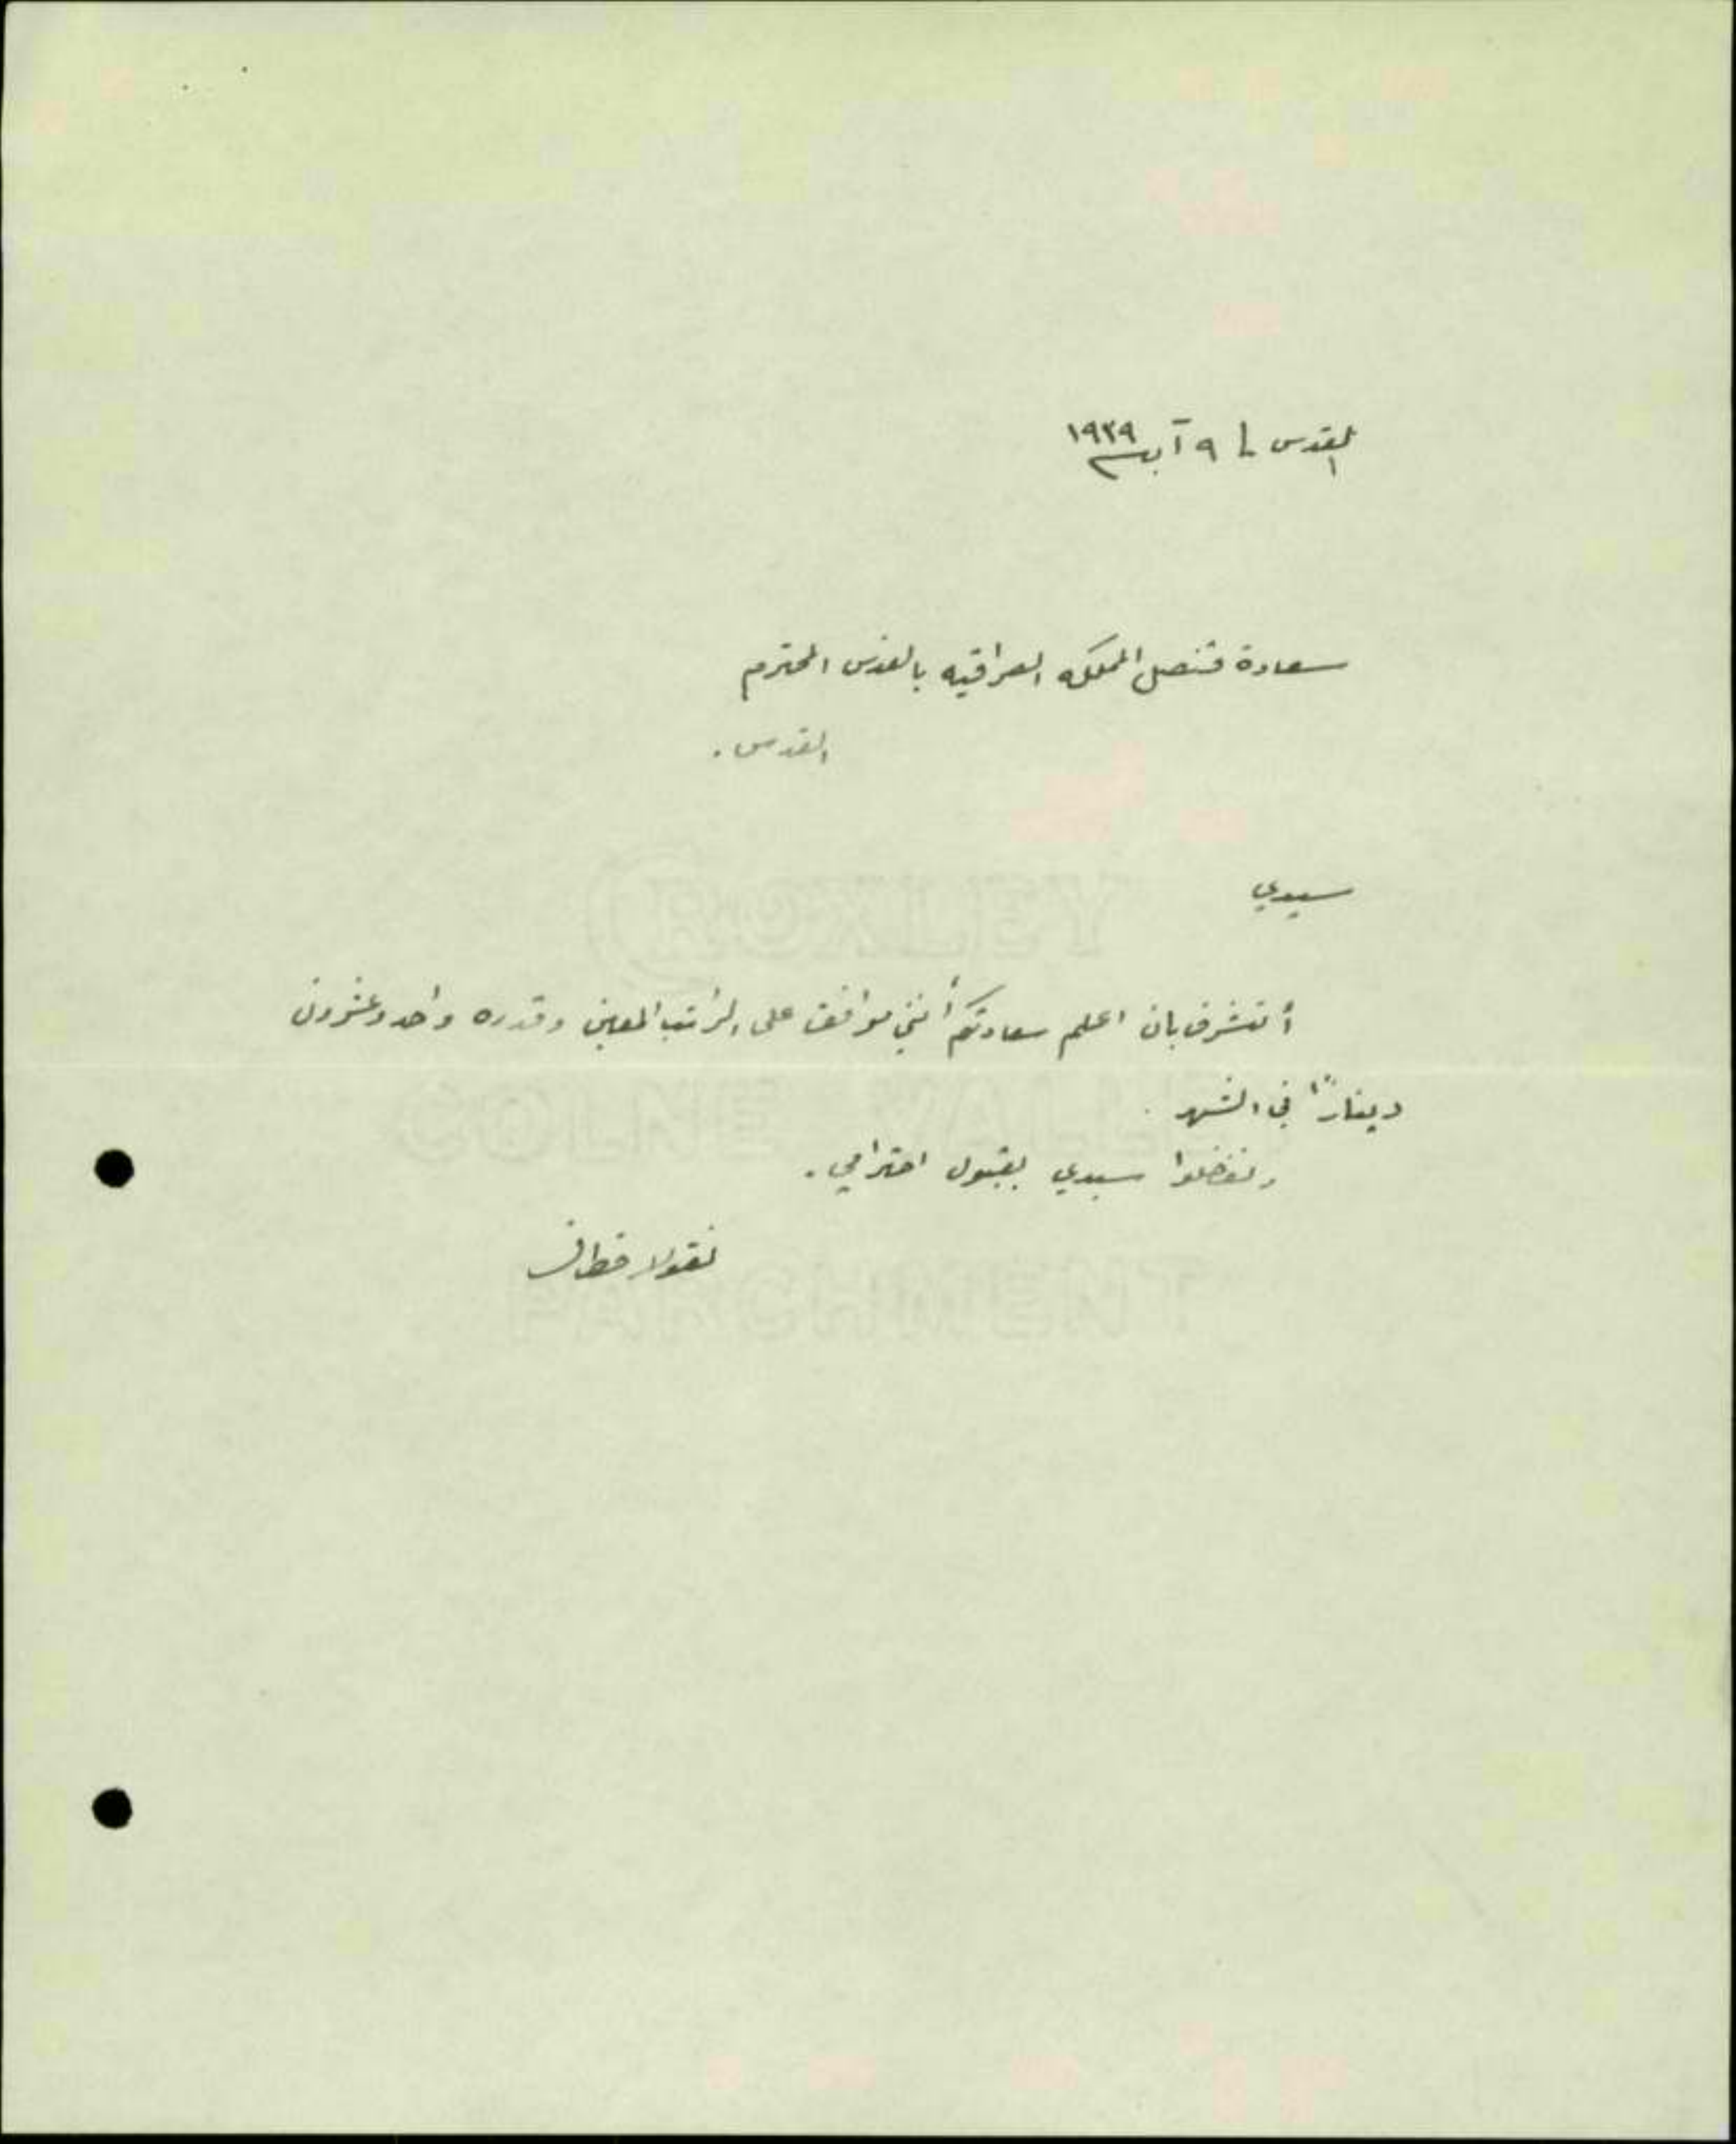 القدس في ٩ آب سنة ١٩٣٩
سعادة قنصل المملكه العراقيه بالقدس المحترم
القدس.
سيدي
أتشرف بان اعلم سعادتكم أنني موافق على الراتب المعين وقدره واحد وعشرون
ديناراً في الشهر.
وتفضلوا سيدي بقبول احترامي.
نقولا قطان
CROXLEY
COLNE VALLEY
PARCHMENT